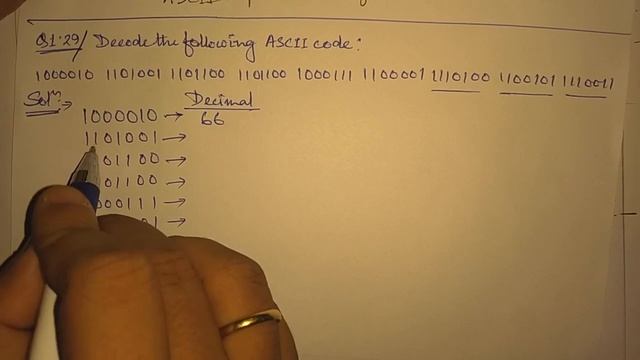 Q1.29/ Decode the following ASCII code:
1000010 1101001 1101100 1101100 1000111 1100001 1110100 1100101 1110011
Solⁿ:→ Decimal
1000010 → 66
1101001 →
101100 →
01100 →
000111 →
01 →